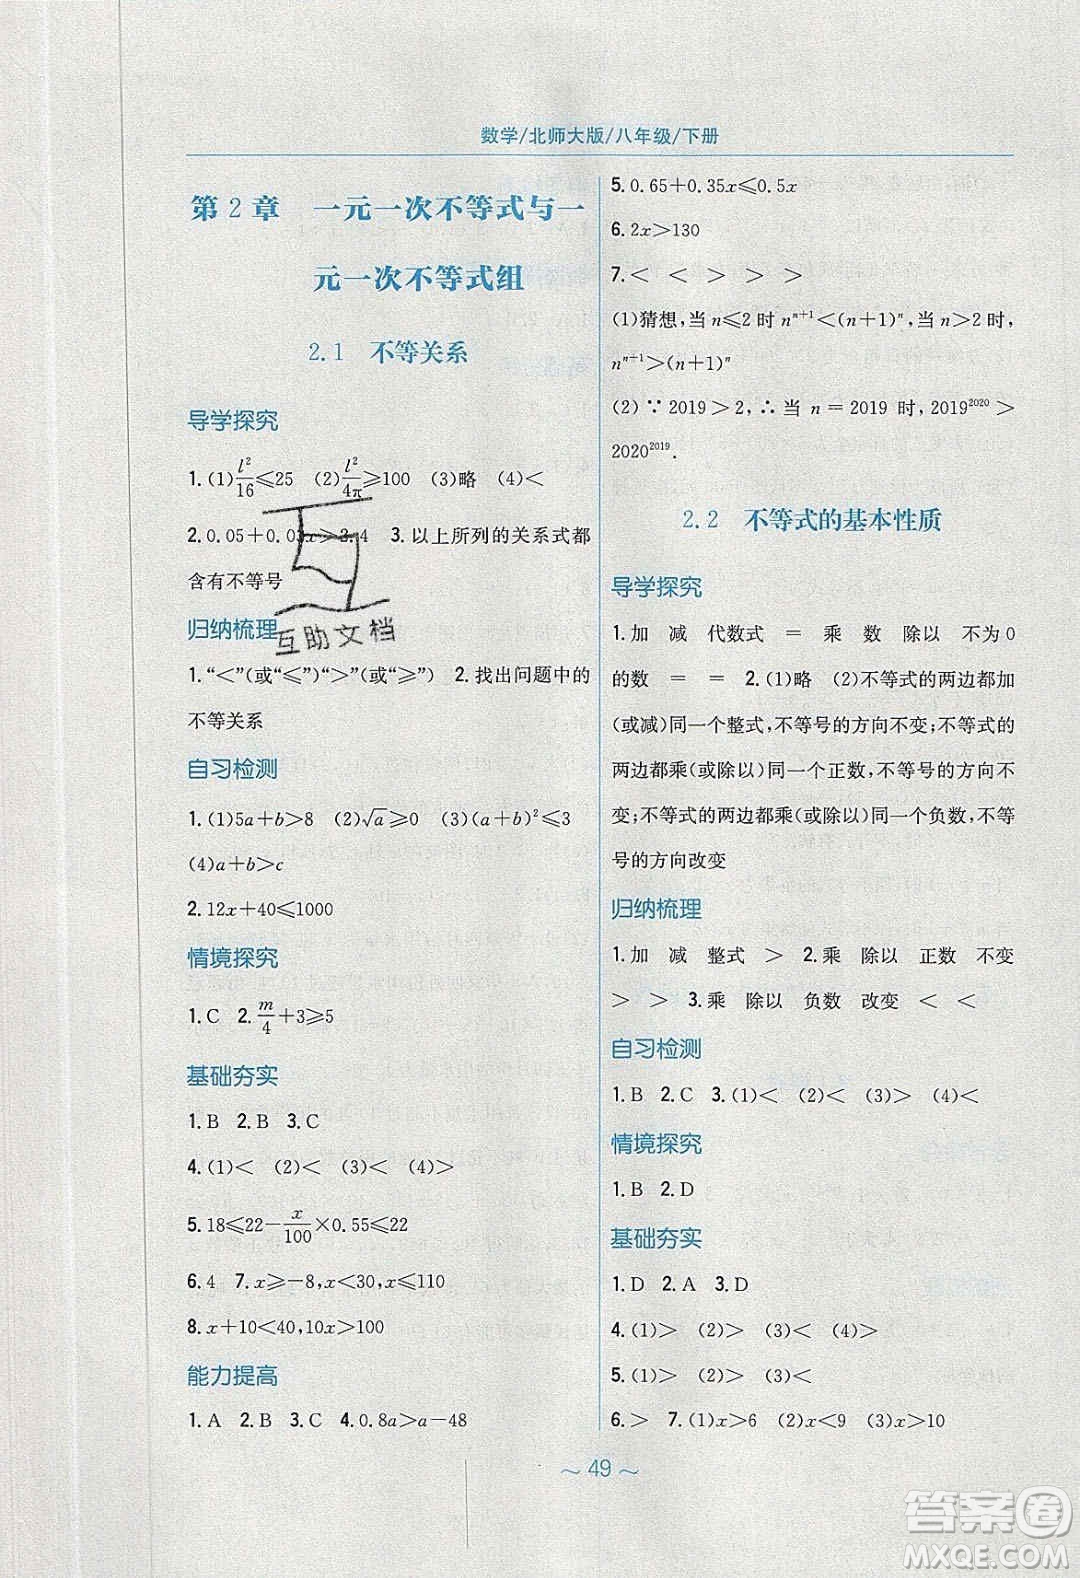 数学/北师大版/八年级/下册
第 2 章 一元一次不等式与一
元一次不等式组
2.1 不等关系
导学探究
1.(1)l²/16≤25 (2)l²/4π≥100 (3)略 (4)<
2.0.05+0.03x>3.4 3.以上所列的关系式都
含有不等号
归纳梳理
1.“<”(或“≤”)“>”(或“≥”) 2.找出问题中的
不等关系
自习检测
1.(1)5a+b>8 (2)√a≥0 (3)(a+b)²≤3
(4)a+b>c
2.12x+40≤1000
情境探究
1.C 2.m/4+3≥5
基础夯实
1.B 2.B 3.C
4.(1)< (2)< (3)< (4)>
5.18≤22-x/100×0.55≤22
6.4 7.x≥-8,x<30,x≤110
8.x+10<40,10x>100
能力提高
1.A 2.C 3.C 4.0.8a>a-48
5.0.65+0.35x≤0.5x
6.2x>130
7.< < > > >
(1)猜想,当 n≤2 时 nⁿ⁺¹<(n+1)ⁿ,当 n>2 时,
nⁿ⁺¹>(n+1)ⁿ
(2)∵2019>2,∴当 n=2019 时,2019²⁰²⁰>
2020²⁰¹⁹.
2.2 不等式的基本性质
导学探究
1.加 减 代数式 = 乘 数 除以 不为0
的数 = = 2.(1)略 (2)不等式的两边都加
(或减)同一个整式,不等号的方向不变;不等式的
两边都乘(或除以)同一个正数,不等号的方向不
变;不等式的两边都乘(或除以)同一个负数,不等
号的方向改变
归纳梳理
1.加 减 整式 > 2.乘 除以 正数 不变
> > 3.乘 除以 负数 改变 < <
自习检测
1.B 2.C 3.(1)< (2)< (3)> (4)<
情境探究
1.B 2.D
基础夯实
1.D 2.A 3.D
4.(1)> (2)> (3)< (4)>
5.(1)> (2)> (3)<
6.> 7.(1)x>6 (2)x<9 (3)x>10
~ 49 ~
互助文档
答案圈
MXQE.COM